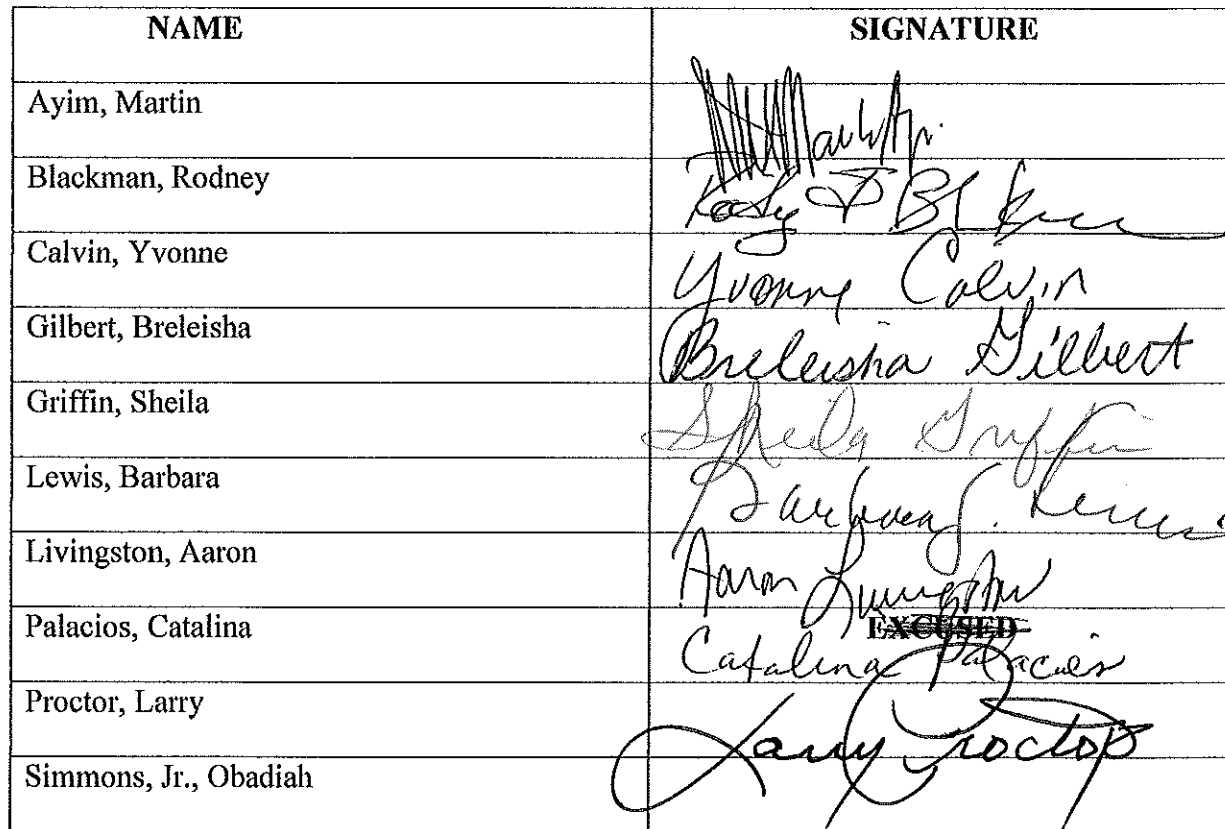 NAME SIGNATURE
Ayim, Martin
Blackman, Rodney
Calvin, Yvonne Yvonne Calvin
Gilbert, Breleisha Breleisha Gilbert
Griffin, Sheila Sheila Griffin
Lewis, Barbara Barbara J. Lewis
Livingston, Aaron Aaron Livingston
EXCUSED
Palacios, Catalina Catalina Palacios
Proctor, Larry Larry Proctor
Simmons, Jr., Obadiah